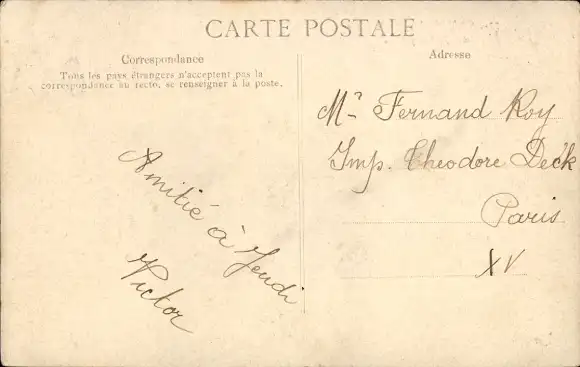 CARTE POSTALE
Correspondance
Tous les pays étrangers n'acceptent pas la
correspondance au recto, se renseigner à la poste.
Amitié à Jeudi
Victor
Adresse
Mr Fernand Roy
Imp. Théodore Deck
Paris
XV